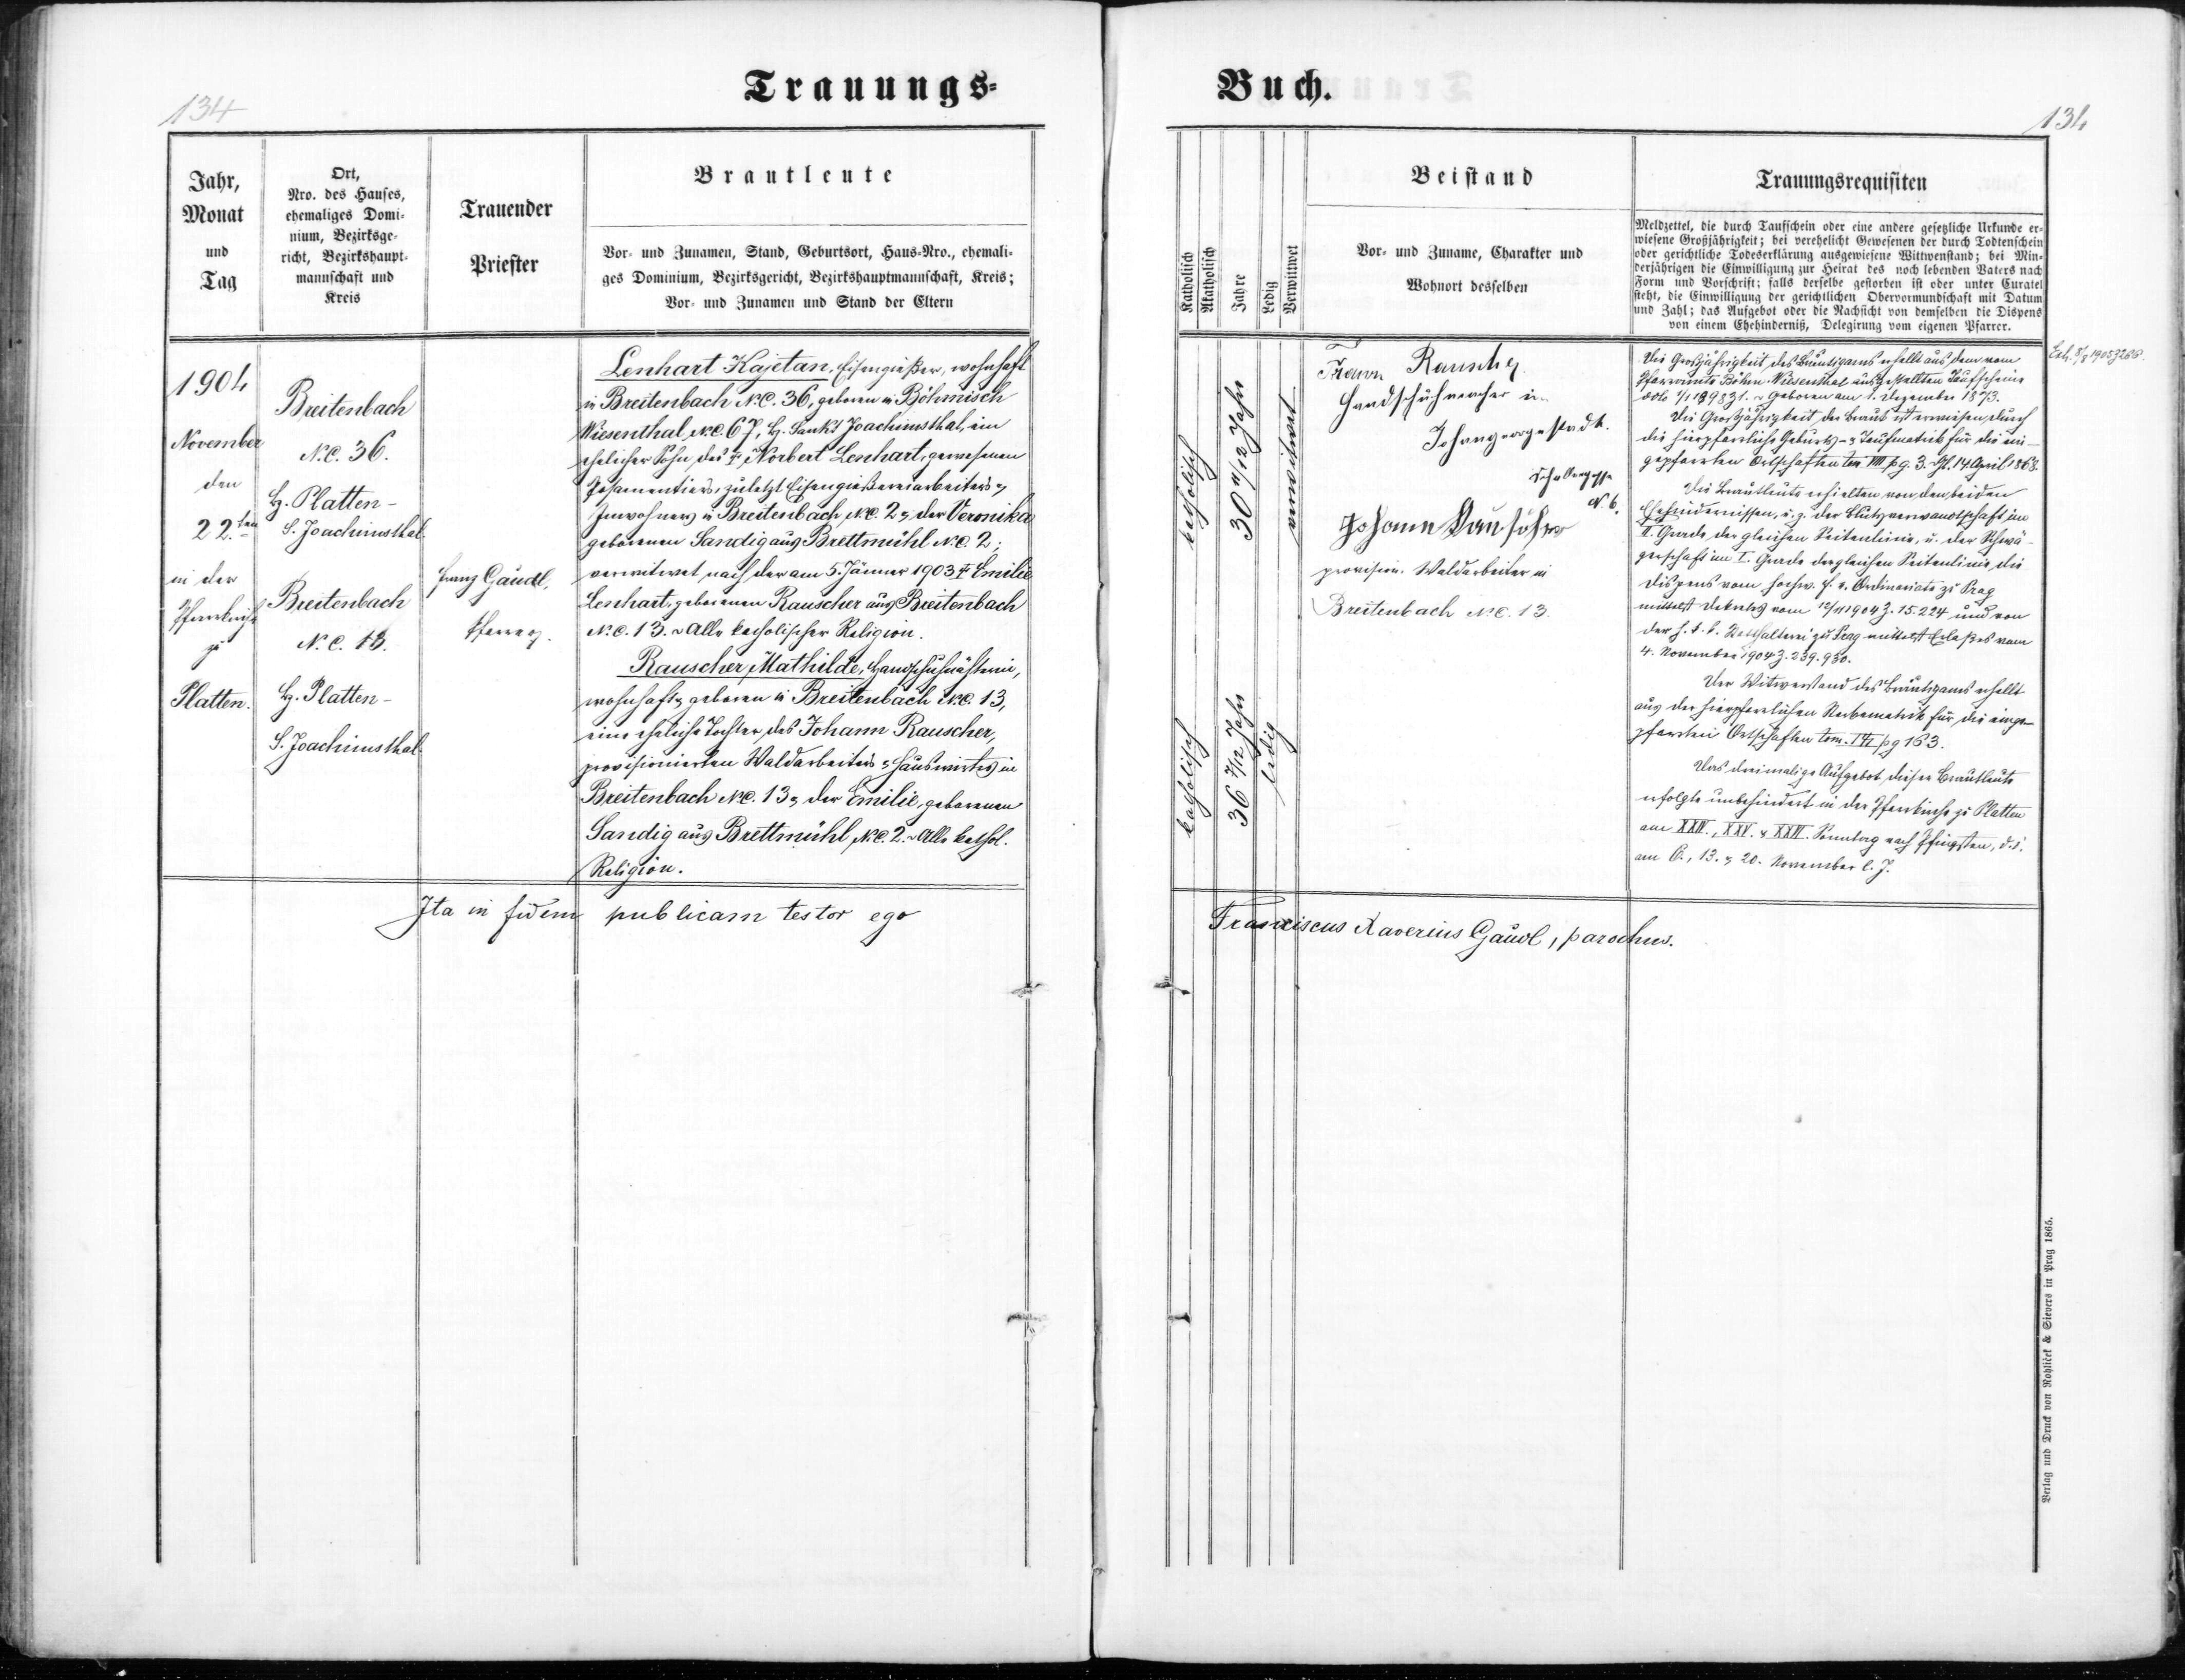 134
Trauungs-
Jahr,
Monat
und
Tag
Ort,
Nro. des Hauses,
ehemaliges Domi-
nium, Bezirksge-
richt, Bezirkshaupt-
mannschaft und
Kreis
Trauender
Priester
Brautleute
Vor- und Zunamen, Stand, Geburtsort, Haus-Nro., ehemali-
ges Dominium, Bezirksgericht, Bezirkshauptmannschaft, Kreis;
Vor- und Zunamen und Stand der Eltern
1904
November
den
22.ten
in der
Pfarrkirche
zu
Platten.
Breitenbach
N.C. 36.
H. Platten-
S. Joachimsthal.
Breitenbach
N.C. 13.
H. Platten-
S. Joachimsthal.
Franz Gaudl,
Pfarrer.
Lenhart Kajetan, Eisengießer, wohnhaft
in Breitenbach N.C. 36, geboren in Böhmisch
Wiesenthal N.C. 67, H. Sankt Joachimsthal, ein
ehelicher Sohn des † Norbert Lenhart, gewesenen
Posamentiers, zuletzt Eisengießereiarbeiters &
Inwohners in Breitenbach N.C. 2 & der Veronika
geborenen Sandig aus Brettmühl N.C. 2;
verwitwet nach der am 5. Jänner 1903 † Emilie
Lenhart, geborenen Rauscher aus Breitenbach
N.C. 13. ~ Alle katholischer Religion.
Rauscher Mathilde, Handschuhnähterin,
wohnhaft & geboren in Breitenbach N.C. 13,
eine eheliche Tochter des Johann Rauscher,
provisionierten Waldarbeiters & Hauswirtes in
Breitenbach N.C. 13 & der Emilie, geborenen
Sandig aus Brettmühl N.C. 2. ~ Alle kathol.
Religion.
Ita in fidem publicam testor ego
Buch.
134
Katholisch
Akatholisch
Jahre
Ledig
Verwitwet
Beistand
Vor- und Zuname, Charakter und
Wohnort desselben
Trauungsrequisiten
Meldzettel, die durch Taufschein oder eine andere gesetzliche Urkunde er-
wiesene Großjährigkeit; bei verehelicht Gewesenen der durch Todtenschein
oder gerichtliche Todeserklärung ausgewiesene Wittwenstand; bei Min-
derjährigen die Einwilligung zur Heirat des noch lebenden Vaters nach
Form und Vorschrift; falls derselbe gestorben ist oder unter Curatel
steht, die Einwilligung der gerichtlichen Obervormundschaft mit Datum
und Zahl; das Aufgebot oder die Nachsicht von demselben die Dispens
von einem Ehehinderniß, Delegirung vom eigenen Pfarrer.
katholisch
30 11/12 Jahre
verwitwet
katholisch
36 7/12 Jahre
ledig
Franz Rauscher
Handschuhmacher in
Johanngeorgenstadt.
N. 6.
Johann Rauscher
provision. Waldarbeiter in
Breitenbach N.C. 13.
Die Großjährigkeit des Bräutigams erhellt aus dem vom
Pfarramte Böhm. Wiesenthal ausgestellten Taufscheine
Geboren am 1. Dezember 1873.
Die Großjährigkeit der Braut ist erwiesen durch
die hierpfarrliche Geburts- & Taufmatrik für die ein-
gepfarrten Ortschaften tom. VIII pg. 3. 14. April 1868.
Die Brautleute erhielten von den beiden
Ehehindernissen, u. z. der Blutsverwandtschaft im
II. Grade der gleichen Seitenlinie, u. der Schwä-
gerschaft im I. Grade der gleichen Seitenlinie die
Dispens vom hochw. f. e. Ordinariate zu Prag
mittelst Dekretes vom 12/11 1904 Z. 15.224 und von
der h. k. k. Statthalterei zu Prag mittelst Erlaßes vom
4. November 1904 Z. 239.930.
Der Witwerstand des Bräutigams erhellt
aus der hierpfarrlichen Sterbematrik für die einge-
pfarrten Ortschaften tom. pg 163.
Das dreimalige Aufgebot dieser Brautleute
erfolgte unbehindert in der Pfarrkirche zu Platten
am XXIV., XXV. & XXVI. Sonntag nach Pfingsten, d. i.
am 6., 13. & 20. November l. J.
Franciscus Xaverius Gaudl, parochus.
Verlag und Druck von Rohliček & Sievers in Prag 1865.